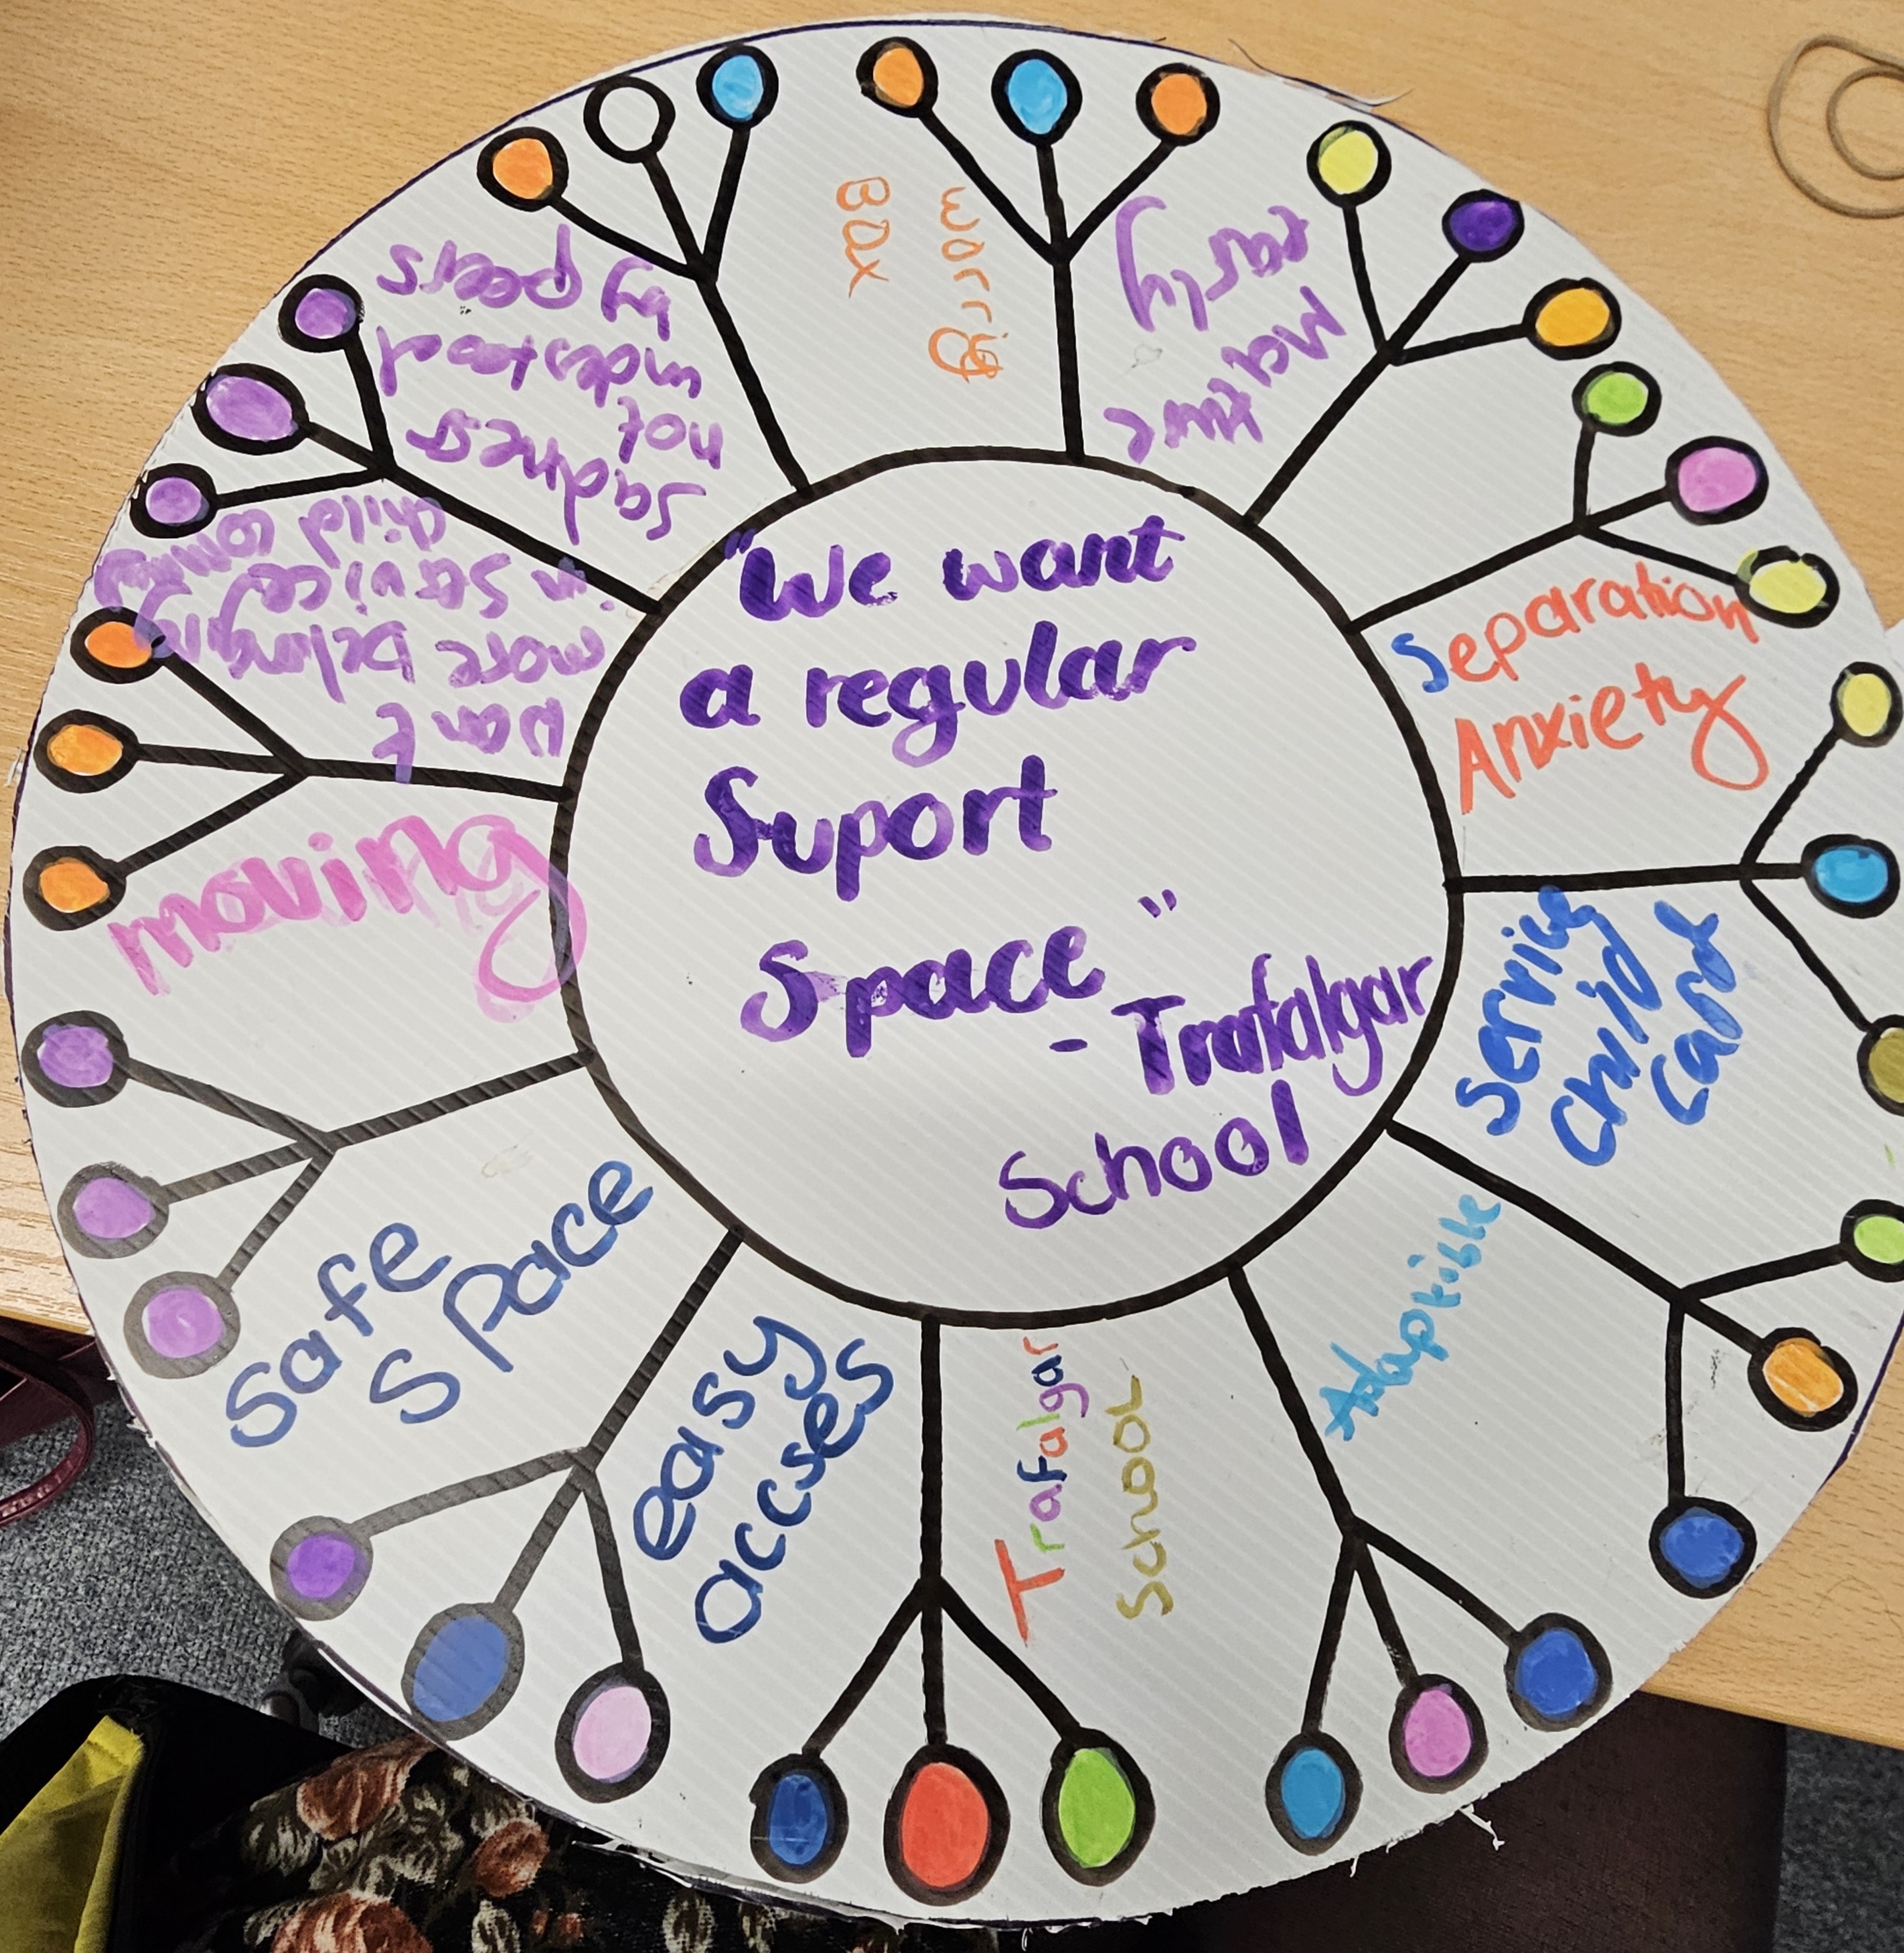 "We want
a regular
Suport
Space"
- Trafalgar
School
BOX
early
Separation
Anxiety
Service
Child
Card
Adaptible
Trafalgar
School
easy
accses
Safe
Space
moving
want
more belonging
in service
child
Sadness
not
understood
by peers